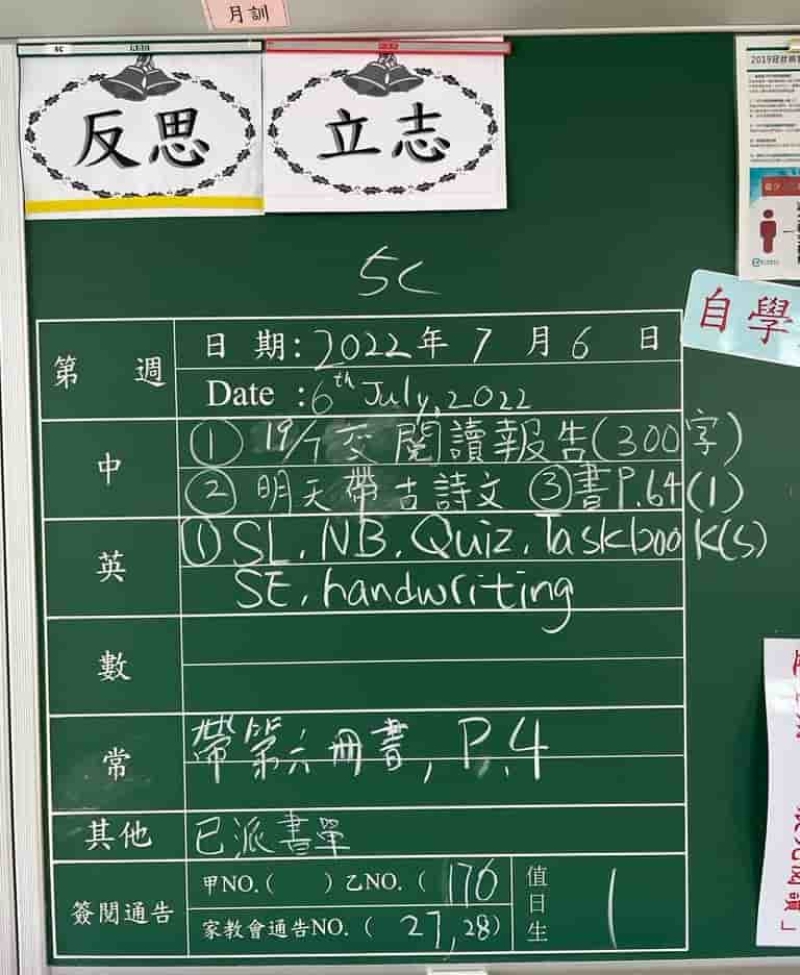 月訓
反思
立志
5C
第 週
日 期: 2022年 7 月 6 日
Date : 6th July, 2022
中
① 19/7 交閱讀報告(300字)
② 明天帶古詩文 ③書P.64(1)
英
① SL. NB. Quiz. Taskbook(s)
SE. handwriting
數
常
帶第六冊書, P.4
其他
已派書單
簽閱通告
甲NO.( ) 乙NO.( 170
家教會通告NO.( 27,28)
值日生
1
自學